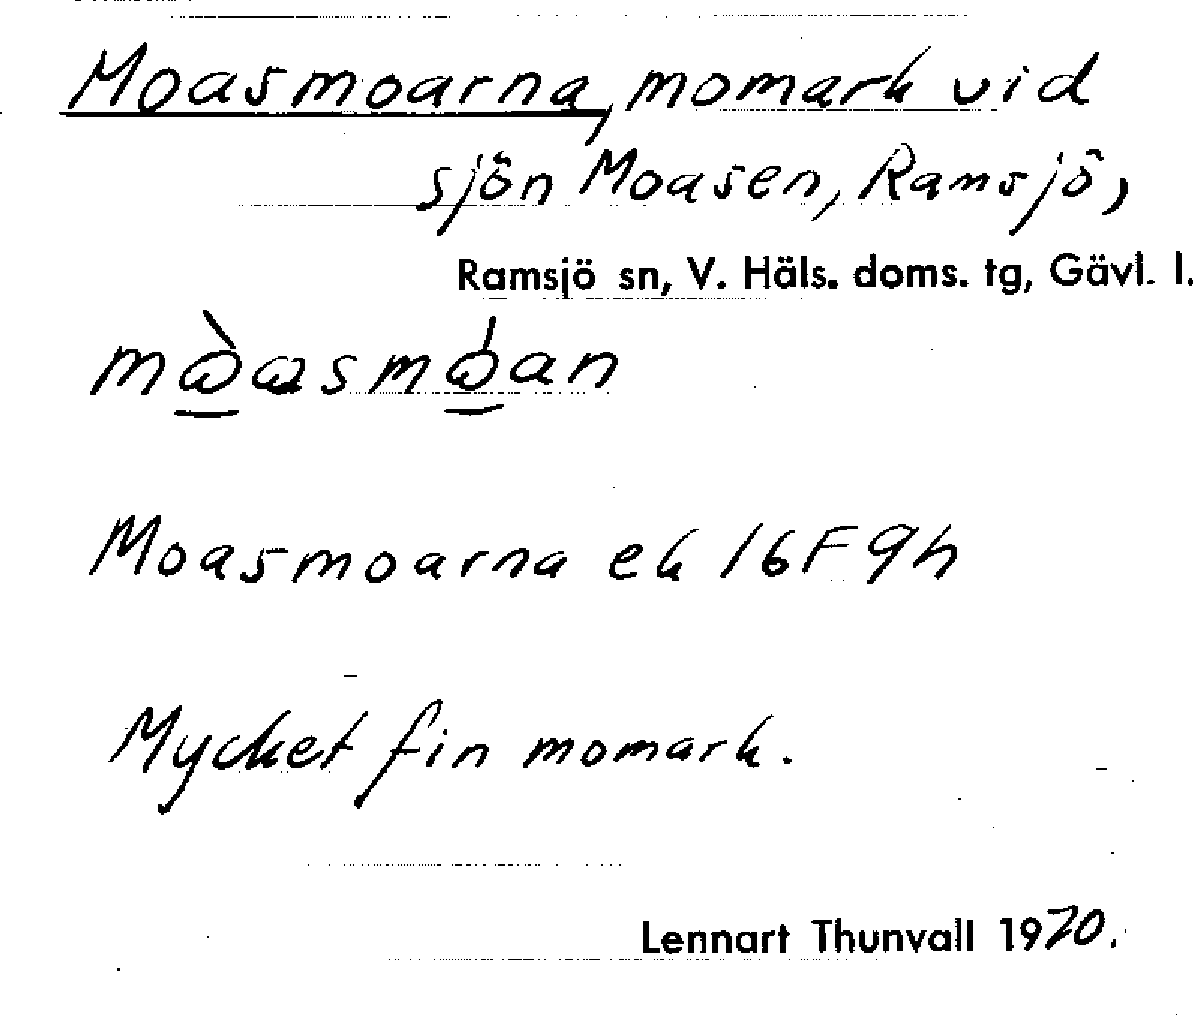 Moasmoarna, momark vid
sjön Moasen, Ramsjö,
Ramsjö sn, V. Häls. doms. tg, Gävl. l.
Moasmoarna ek 16F9h
Mycket fin momark.
Lennart Thunvall 1970.